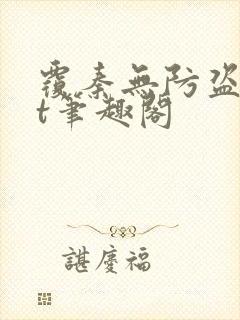 覆秦無防盜
t筆趣閣
諶慶福